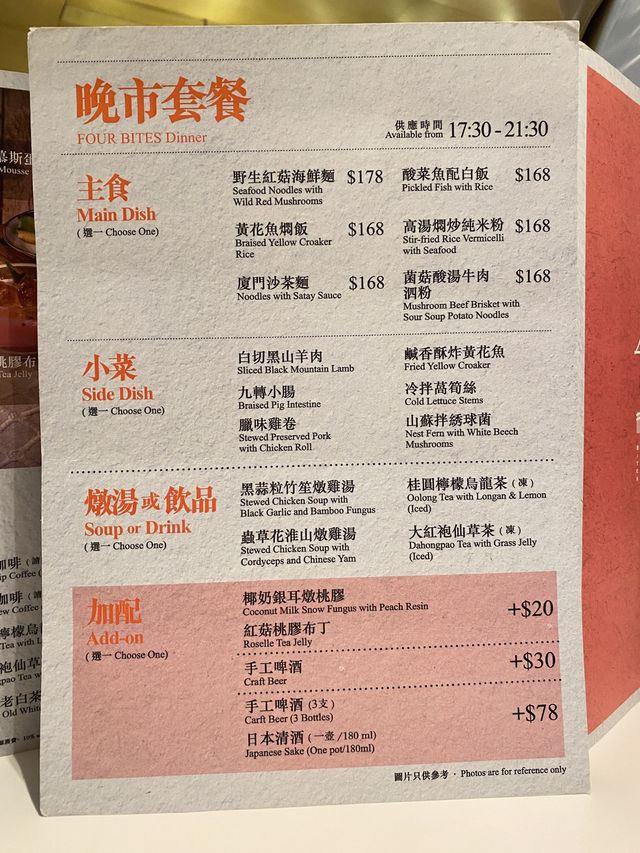 晚市套餐
FOUR BITES Dinner
供應時間
Available from 17:30 - 21:30
主食
Main Dish
( 選一 Choose One)
野生紅菇海鮮麵 $178
Seafood Noodles with
Wild Red Mushrooms
酸菜魚配白飯 $168
Pickled Fish with Rice
黃花魚燜飯 $168
Braised Yellow Croaker
Rice
高湯燜炒純米粉 $168
Stir-fried Rice Vermicelli
with Seafood
廈門沙茶麵 $168
Noodles with Satay Sauce
菌菇酸湯牛肉 $168
泗粉
Mushroom Beef Brisket with
Sour Soup Potato Noodles
小菜
Side Dish
( 選一 Choose One)
白切黑山羊肉
Sliced Black Mountain Lamb
鹹香酥炸黃花魚
Fried Yellow Croaker
九轉小腸
Braised Pig Intestine
冷拌萵筍絲
Cold Lettuce Stems
臘味雞卷
Stewed Preserved Pork
with Chicken Roll
山蘇拌綉球菌
Nest Fern with White Beech
Mushrooms
燉湯或飲品
Soup or Drink
( 選一 Choose One)
黑蒜粒竹笙燉雞湯
Stewed Chicken Soup with
Black Garlic and Bamboo Fungus
桂圓檸檬烏龍茶 ( 凍 )
Oolong Tea with Longan & Lemon
(Iced)
蟲草花淮山燉雞湯
Stewed Chicken Soup with
Cordyceps and Chinese Yam
大紅袍仙草茶 ( 凍 )
Dahongpao Tea with Grass Jelly
(Iced)
加配
Add-on
( 選一 Choose One)
椰奶銀耳燉桃膠
Coconut Milk Snow Fungus with Peach Resin
+$20
紅菇桃膠布丁
Roselle Tea Jelly
手工啤酒
Craft Beer
+$30
手工啤酒 (3支 )
Carft Beer (3 Bottles)
+$78
日本清酒 ( 一壺 /180 ml)
Japanese Sake (One pot/180ml)
圖片只供參考 · Photos are for reference only
Mousse
桃膠布
Tea Jelly
咖啡
檸檬烏
Tea with L
袍仙草
老白茶
Old Whit